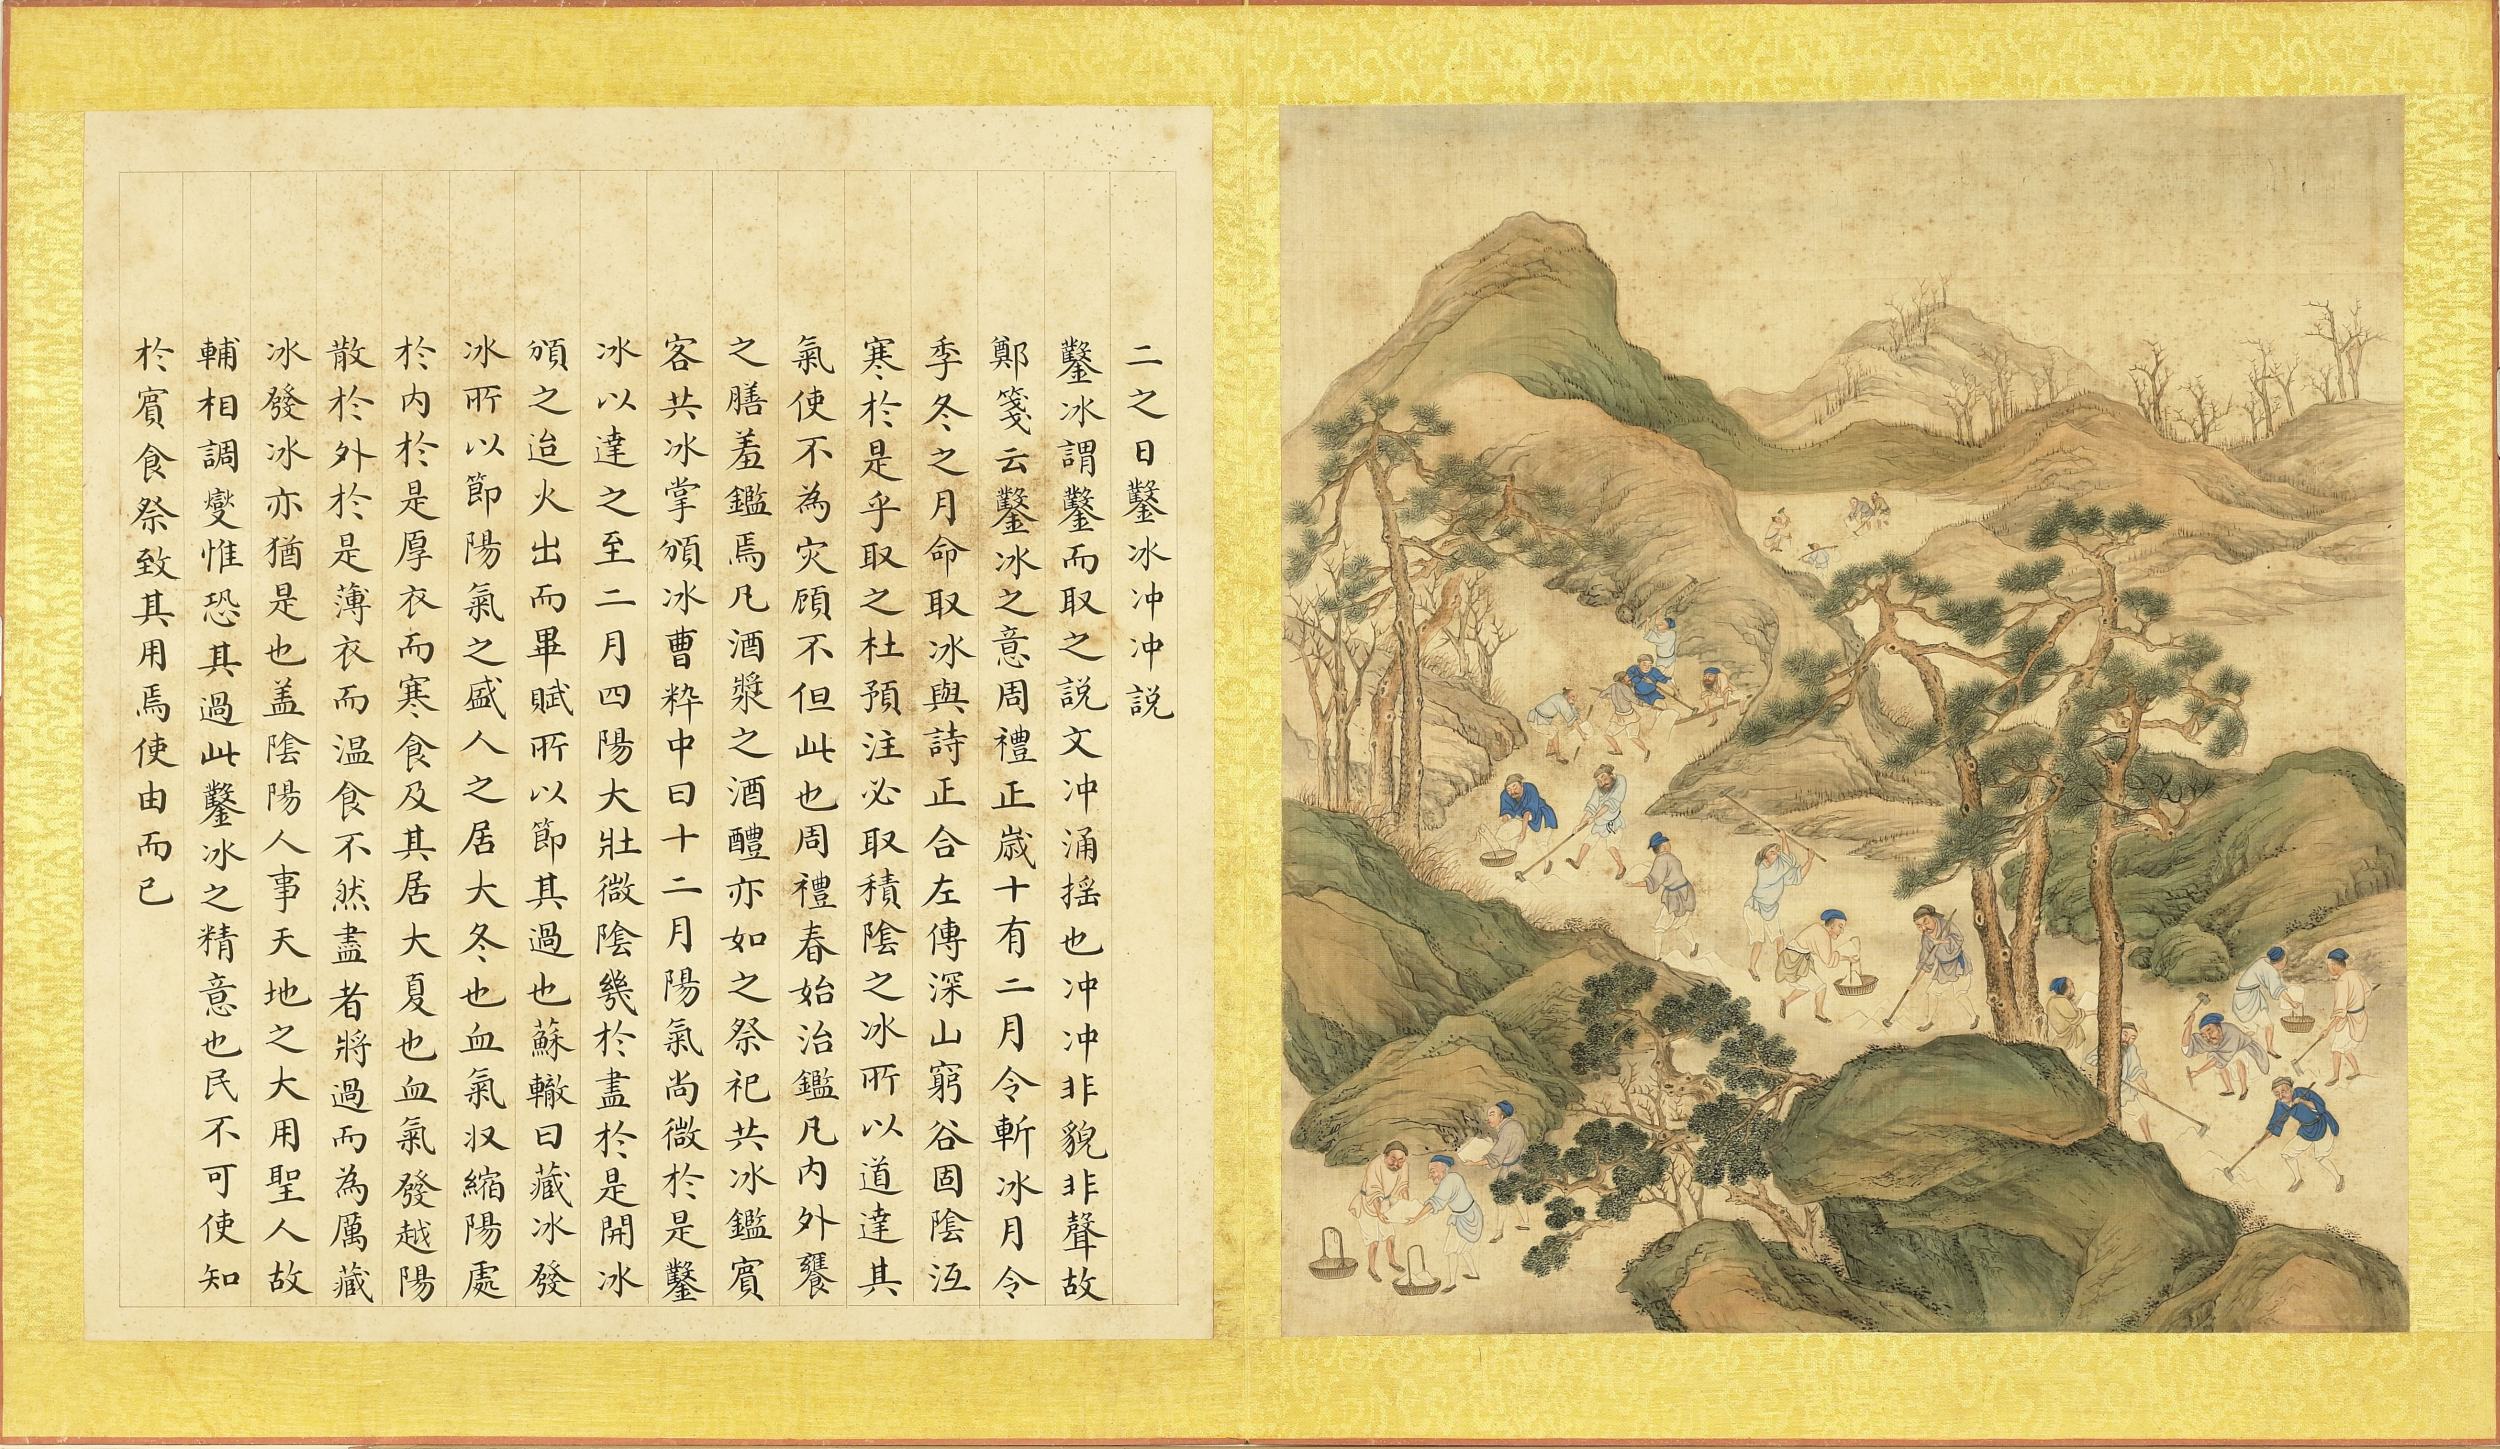 二之日鑿冰冲冲説
鑿冰謂鑿而取之説文冲涌摇也冲冲非貌非聲故
鄭箋云鑿冰之意周禮正歲十有二月令斬冰月令
季冬之月命取冰與詩正合左傳深山窮谷固陰沍
寒於是乎取之杜預注必取積陰之冰所以道達其
氣使不為灾顧不但此也周禮春始治鑑凡内外饔
之膳羞鑑焉凡酒漿之酒醴亦如之祭祀共冰鑑賓
客共冰掌頒冰曹粹中曰十二月陽氣尚微於是鑿
冰以達之至二月四陽大壯微陰幾於盡於是開冰
頒之迨火出而畢賦所以節其過也蘇轍曰藏冰發
冰所以節陽氣之盛人之居大冬也血氣収縮陽處
於内於是厚衣而寒食及其居大夏也血氣發越陽
散於外於是薄衣而温食不然盡者將過而為厲藏
冰發冰亦猶是也盖陰陽人事天地之大用聖人故
輔相調燮惟恐其過此鑿冰之精意也民不可使知
於賓食祭致其用焉使由而已